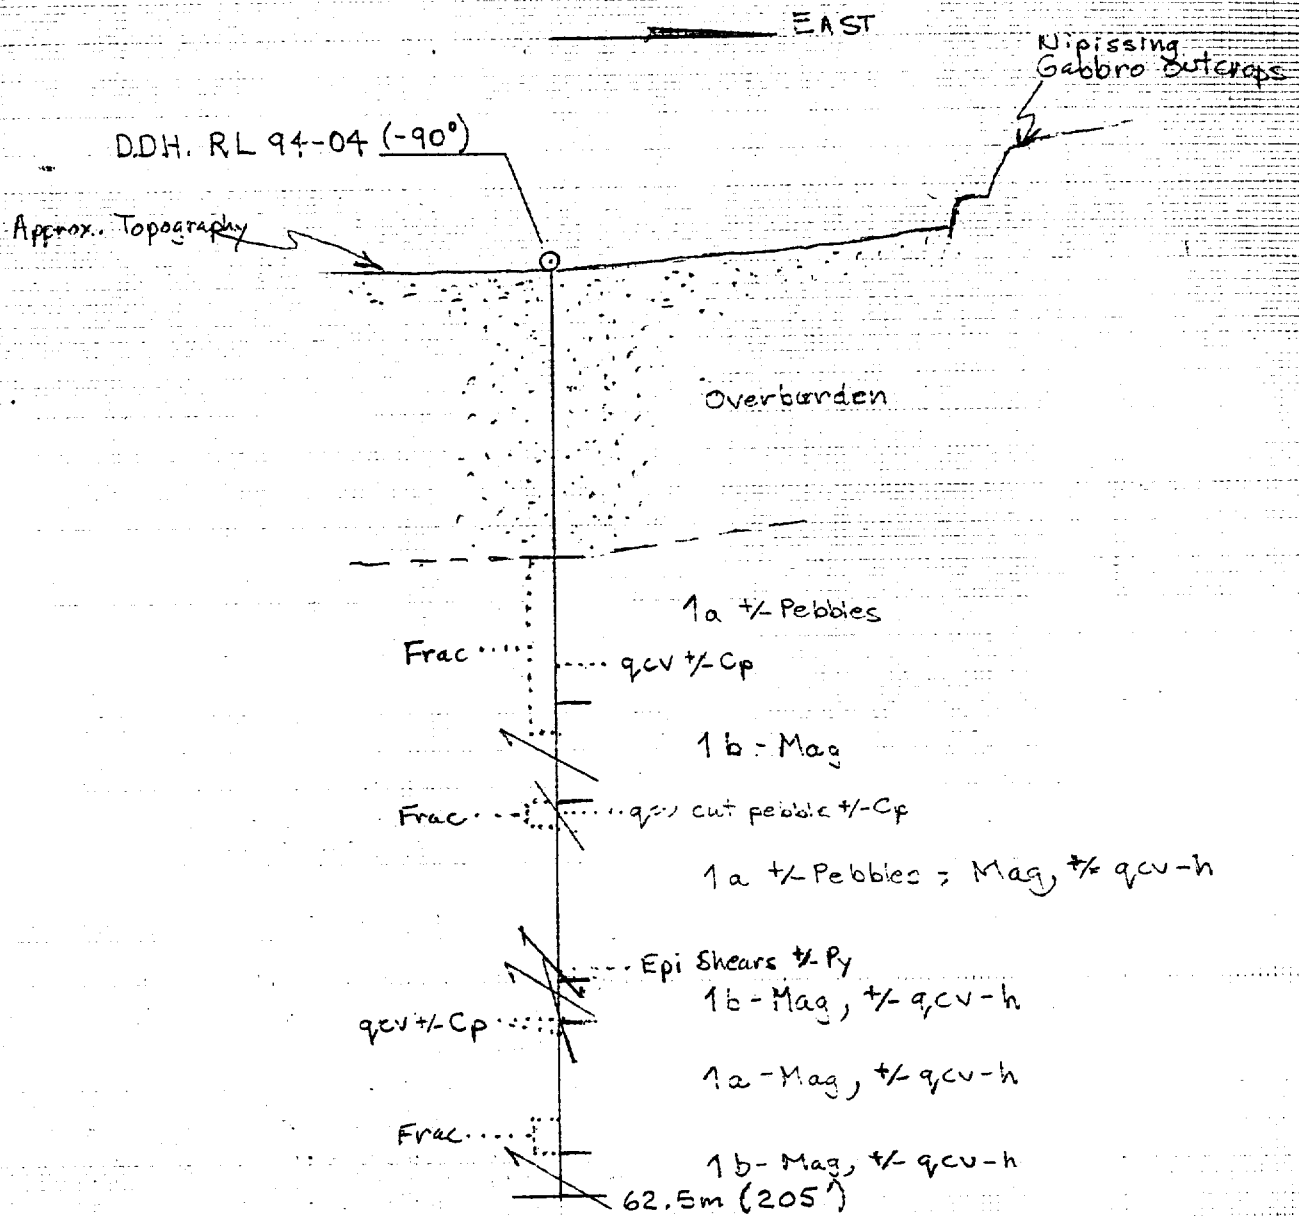 EAST
Nipissing
Gabbro outcrops
D.D.H. RL 94-04 (-90°)
Approx. Topography
Overburden
1a +/- Pebbles
Frac
qcv +/- Cp
1b - Mag
Frac
cut pebble +/- Cp
1a +/- Pebbles ; Mag, +/- qcv-h
Epi Shears +/- Py
1b - Mag, +/- qcv-h
qcv +/- Cp
1a - Mag, +/- qcv-h
Frac
1b - Mag, +/- qcv-h
62.5m (205')